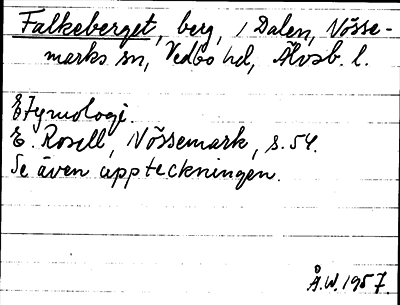 Falkeberget, berg, i Dalen, Nösse-
marks sn, Vedbo hd, Älvsb. l.
Etymologi.
E. Rosell, Nössemark, s. 54.
Se även uppteckningen.
Å.W. 1957.